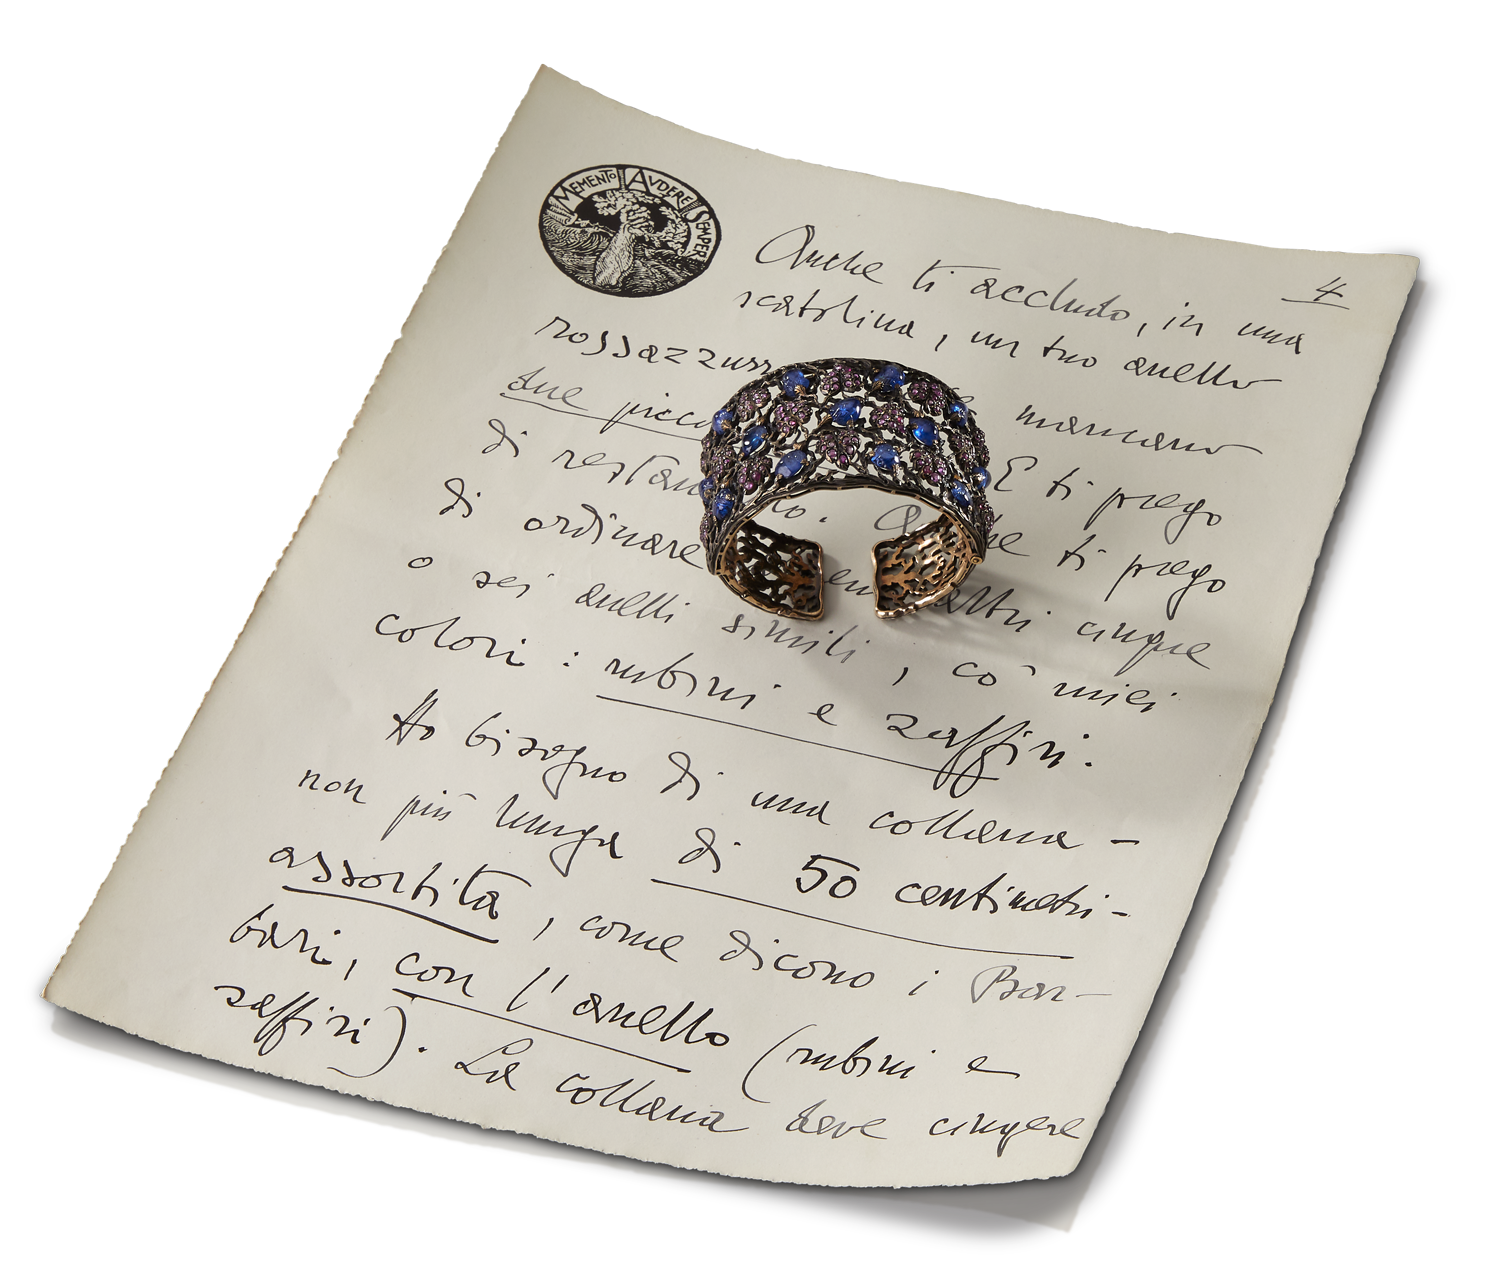 MEMENTO AVDERE SEMPER
4
Anche ti accludo, in una
scatolina, un tuo anello
rossazzurro mancano
due
di E ti prego
di ordinare ti prego
altri cinque
o sei anelli simili, co' miei
colori: rubini e zaffiri.
Ho bisogno di una collana -
non più lunga di 50 centimetri -
assortita, come dicono i Bar-
bari, con l'anello (rubini e
zaffiri). La collana deve cingere